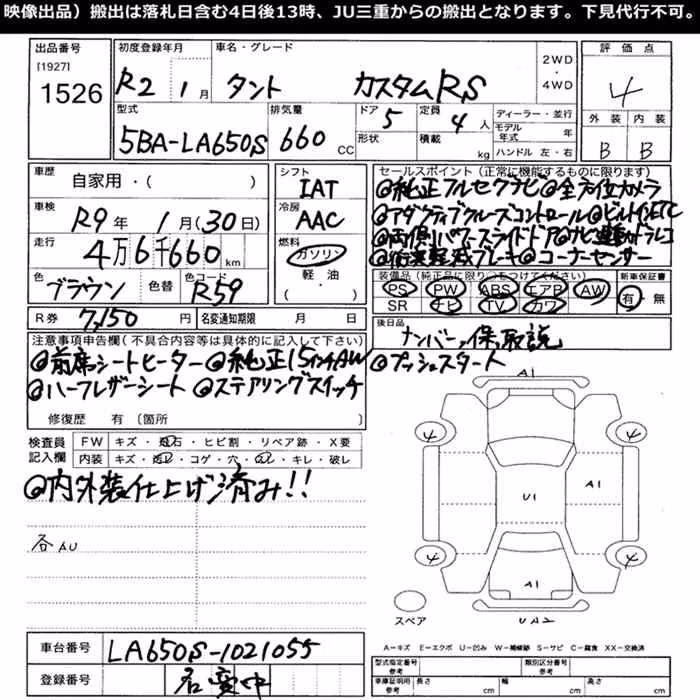 映像出品）搬出は落札日含む4日後13時、JU三重からの搬出となります。下見代行不可。
出品番号 初度登録年月 車名・グレード 2WD・4WD 評価点
[1927]
1526 R2 1月 タント カスタムRS 4
型式 排気量 ドア 5 定員 4人 ディーラー・並行 外装 内装
5BA-LA650S 660cc 形状 積載 kg モデル年式 年 B B
ハンドル 左・右
車歴 自家用・( ) シフト IAT セールスポイント（正常に機能するものに限ります）
◎純正フルセグナビ◎全方位カメラ
車検 R9年 1月(30日) 冷房 AAC ◎アダクティブクルーズコントロール◎ビルトインETC
走行 4万6千660km 燃料 ガソリン ◎両側パワースライドドア◎ナビ連動ドラレコ
軽・油 ◎衝突軽減ブレーキ◎コーナーセンサー
色 ブラウン 色替 色コード R59 ( ) 装備品（純正品に限り○をつけてください） 新車保証書
PS PW ABS エアB AW 有・無
SR ナビ TV カワ
R券 7,150円 名変通知期限 月 日 後日品
ナンバー、保、取説
注意事項申告欄(不具合内容等は具体的に記入して下さい)
◎前席シートヒーター◎純正15インチAW◎プッシュスタート
◎ハーフレザーシート◎ステアリングスイッチ
修復歴 有〔箇所 〕
検査員記入欄 FW キズ・飛石・ヒビ割・リペア跡・X要
内装 キズ・汚レ・コゲ・穴・スレ・キレ・破レ
◎内外装仕上げ済み!!
各AU
A1
4 4
U1 A1
4 4
A1
スペア UA2
A－キズ E－エクボ U－凹み W－補修跡 S－サビ C－腐食 XX－交換済
車台番号 LA650S-1021055
登録番号 名変中
型式指定番号 参考 類別区分番号 参考
車庫証明用 参考 長さ cm 幅 cm 高さ cm